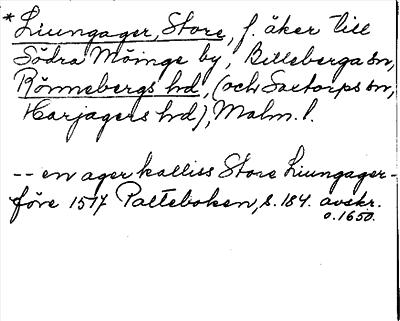 * Liungager, Store, f. åker till
Södra Möinge by, Billeberga sn,
Rönnebergs hd, (och Saxtorps sn,
Harjagers hd), Malm. l.
-- en ager kalliss Store Liungager -
före 1517 Palteboken, s. 184. avskr.
o. 1650.